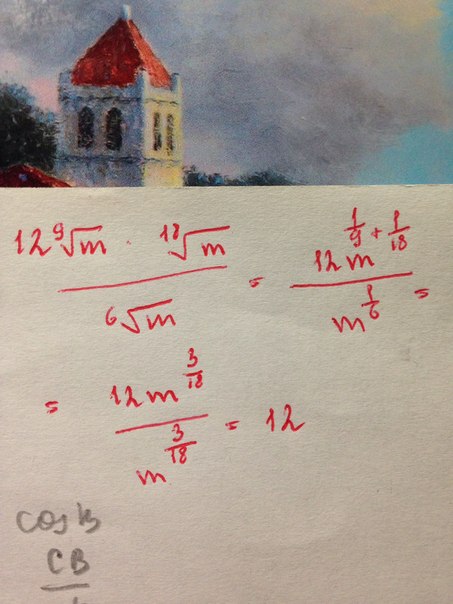 12 ⁹√m · ¹⁸√m / ⁶√m = 12m^(1/9 + 1/18) / m^(1/6) =
= 12m^(3/18) / m^(3/18) = 12
cos B
CB